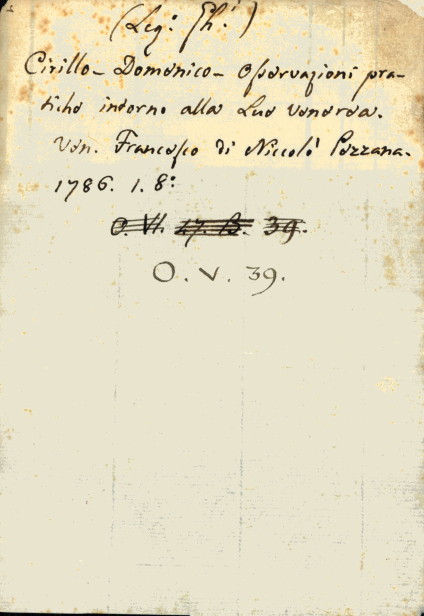 (Leg: Gh:)
Cirillo - Domenico - Osservazioni pra-
tiche intorno alla Lue Venerea.
Ven. Francesco di Niccolò Pezzana.
1786. 1. 8:
O. VI. 17. B. 39.
O. V. 39.